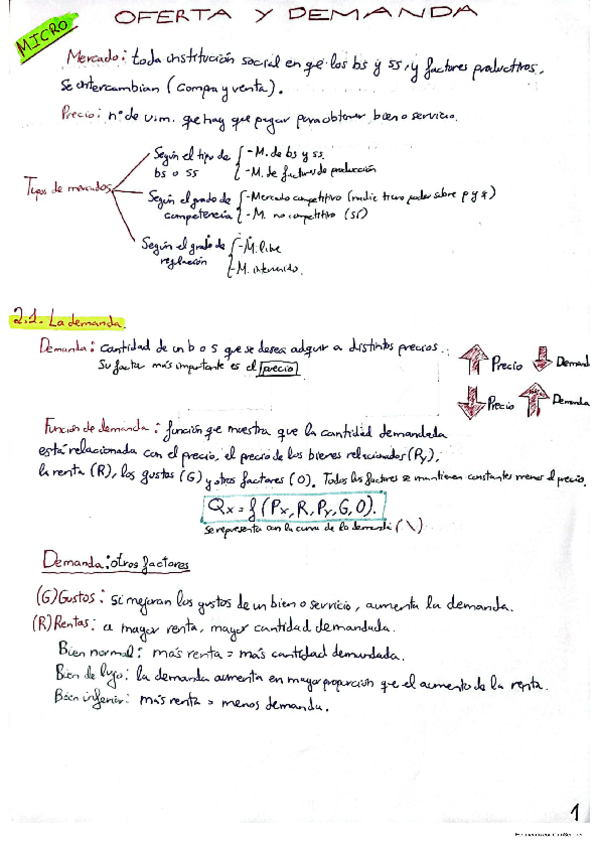 OFERTA Y DEMANDA
MICRO
Mercado: toda institución social en que los bs y ss, y factores productivos,
se intercambian (compra y venta).
Precio: nº de u.m. que hay que pagar para obtener bien o servicio.
Tipos de mercados
Según el tipo de bs o ss
- M. de bs y ss.
- M. de factores de producción
Según el grado de competencia
- Mercado competitivo (nadie tiene poder sobre p y q)
- M. no competitivo (sí)
Según el grado de regulación
- M. libre
- M. intervenido.
2.1. La demanda.
Demanda: cantidad de un b o s que se desea adquirir a distintos precios.
Su factor más importante es el precio
Precio Demanda
Precio Demanda
Función de demanda: función que muestra que la cantidad demandada
está relacionada con el precio, el precio de los bienes relacionados (Py),
la renta (R), los gustos (G) y otros factores (O). Todos los factores se mantienen constantes menos el precio.
Qx = f (Px, R, Py, G, O).
se representa con la curva de la demanda (\)
Demanda: otros factores
(G) Gustos: si mejoran los gustos de un bien o servicio, aumenta la demanda.
(R) Rentas: a mayor renta, mayor cantidad demandada.
Bien normal: más renta = más cantidad demandada.
Bien de lujo: la demanda aumenta en mayor proporción que el aumento de la renta.
Bien inferior: más renta = menos demanda.
1